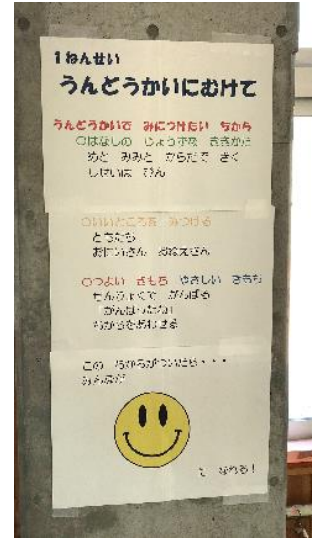 1ねんせい
うんどうかいにむけて
うんどうかいで みにつけたい ちから
○はなしの じょうずな ききかた
めと みみと からだで きく
しせいは ぴん
○いいところを みつける
ともだち
おにいさん おねえさん
○つよい きもち やさしい きもち
ぜんりょくで がんばる
「がんばったね」
ちからをあわせる
この ちからがついたら・・・
みんなが
に なれる！